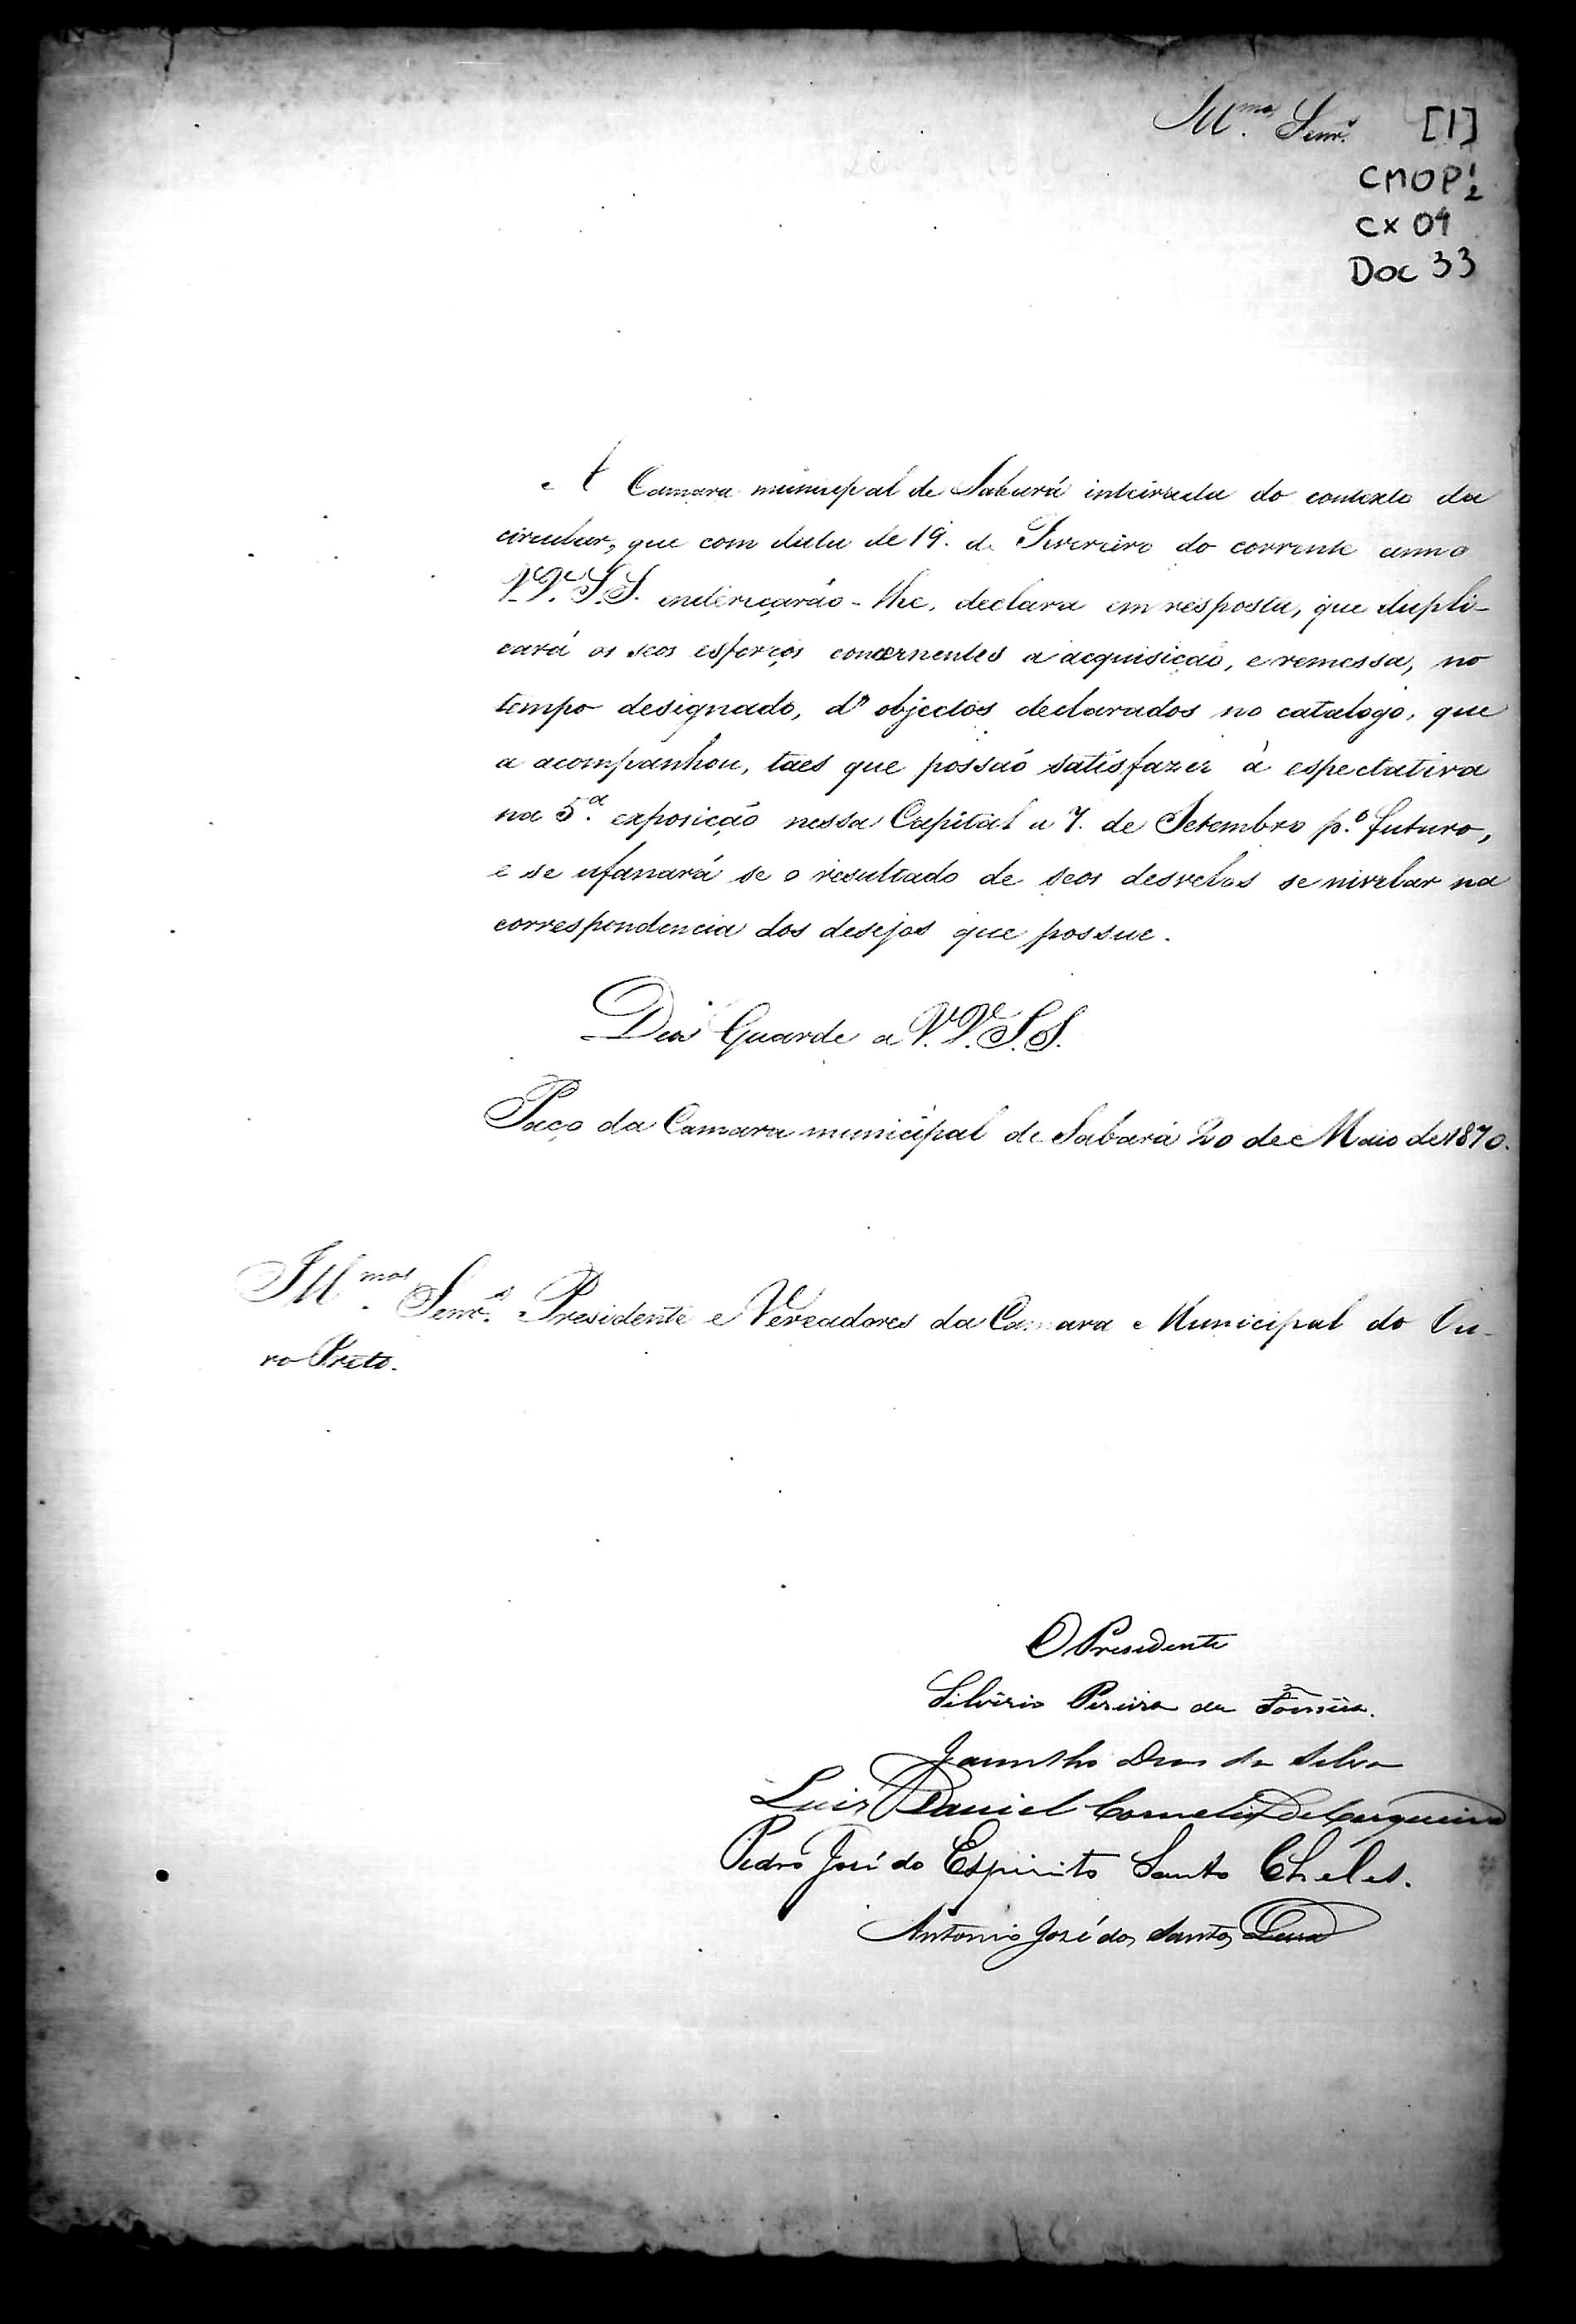 Illmos. Senrs.
[1]
CMOP 1/2
CX 04
Doc 33
A Camara municipal de Sabará inteirada do contexto da
circular, que com data de 19. de Fevereiro do corrente anno
V.V.S.S. endereçarão-lhe, declara em resposta, que dupli-
cará os seos esforços concernentes a acquisição, e remessa, no
tempo designado, d'objectos declarados no catalogo, que
a acompanhou, taes que possaõ satisfazer à espectativa
na 5.ª exposição nessa Capital a 7. de Setembro p.º futuro,
e se ufanará se o resultado de seos desvelos se nivelar na
correspondencia dos desejos que possue.
Deos Guarde a V.V.S.S.
Paço da Camara municipal de Sabará 20 de Maio de 1870.
Illmos. Senrs. Presidente e Vereadores da Camara Municipal do Ou-
ro Preto.
O Presidente
Silverio Pereira da
Jacintho Dias da Silva
Luis Daniel Cornelio de Cerqueira
Pedro José do Espirito Santo Chéles.
Antonio José dos Santos